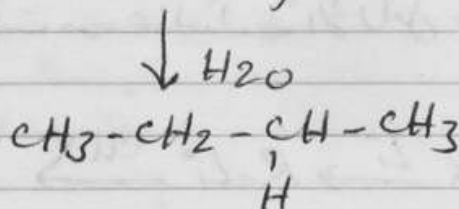 ↓ H2O
CH3-CH2-CH-CH3
H